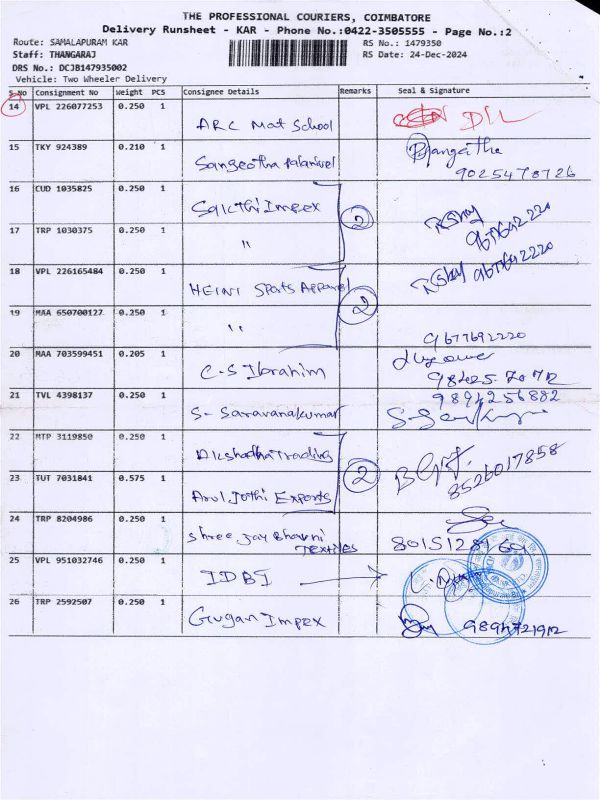 THE PROFESSIONAL COURIERS, COIMBATORE
Delivery Runsheet - KAR - Phone No.:0422-3505555 - Page No.:2
Route: SAMALAPURAM KAR RS No.: 1479350
Staff: THANGARAJ RS Date: 24-Dec-2024
DRS No.: DCJB147935002
Vehicle: Two Wheeler Delivery
S.No Consignment No Weight PCS Consignee Details Remarks Seal & Signature
14 VPL 226077253 0.250 1 ARC Mat School DIL
15 TKY 924389 0.210 1 Sangeetha Palanivel
9025478726
16 CUD 1035825 0.250 1 Sakthi Impex 2
17 TRP 1030375 0.250 1 " 9677692220
18 VPL 226165484 0.250 1 HEINI Sports Apparel 2 9677692220
19 MAA 650700127 0.250 1 " 9677692220
20 MAA 703599451 0.205 1 C-S Ibrahim
21 TVL 4398137 0.250 1 S- Saravanakumar 9894256882
22 MTP 3119850 0.250 1 Trading 2
23 TUT 7031841 0.575 1 Arul Jothi Exports 8526017858
24 TRP 8204986 0.250 1 Shree Jay Bhavani
Textiles
25 VPL 951032746 0.250 1 IDBI
26 TRP 2592507 0.250 1 Gugan Impex 9894721912